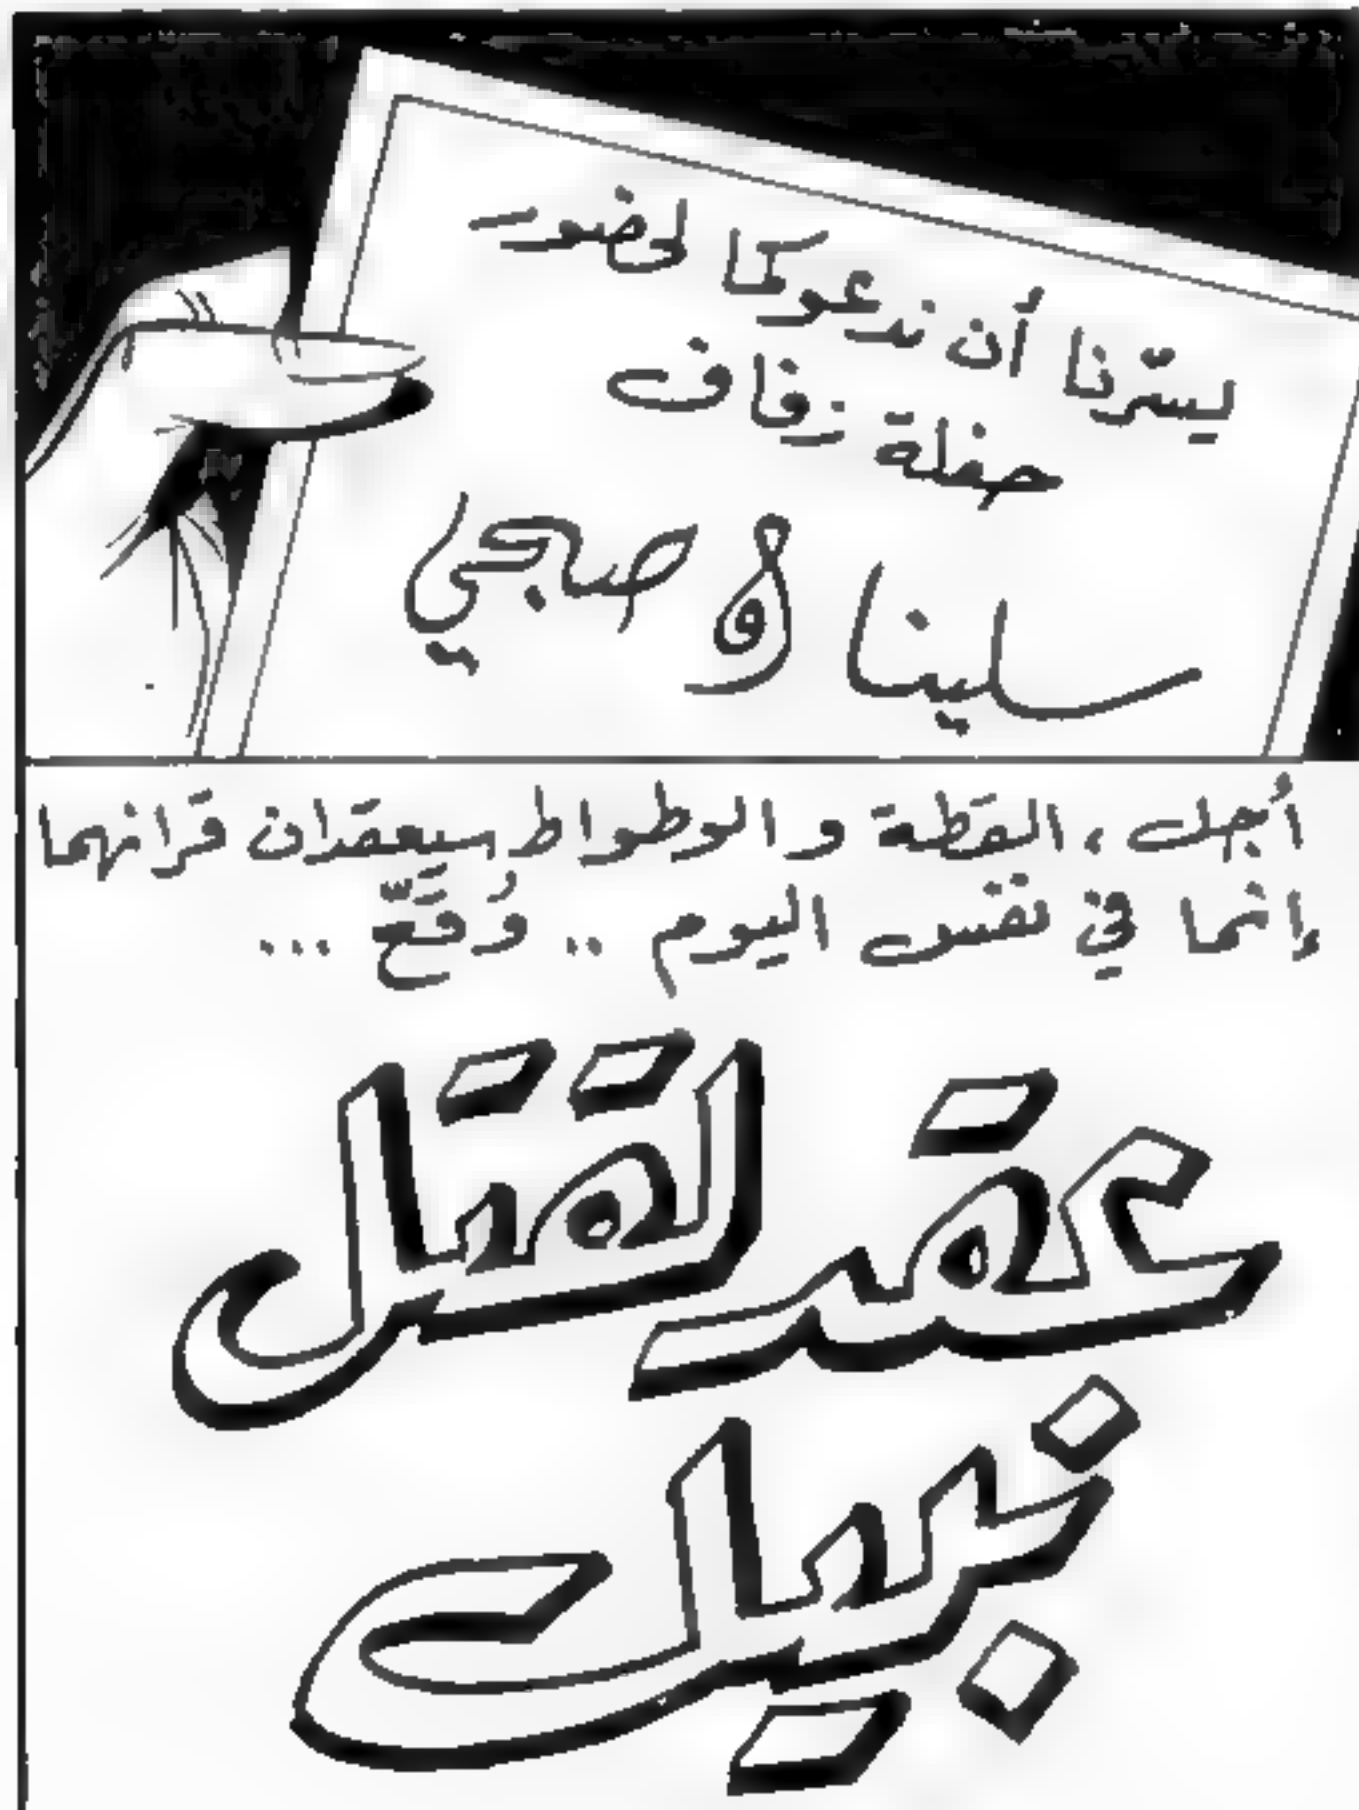 يسّرنا أن ندعوكما لحضور
حفلة زفاف
سلينا و صبحي
أجل ، القطة و الوطواط سيعقدان قرانهما
إنما في نفس اليوم .. وُقَّعَ ...
عقد لقتل
نبيل